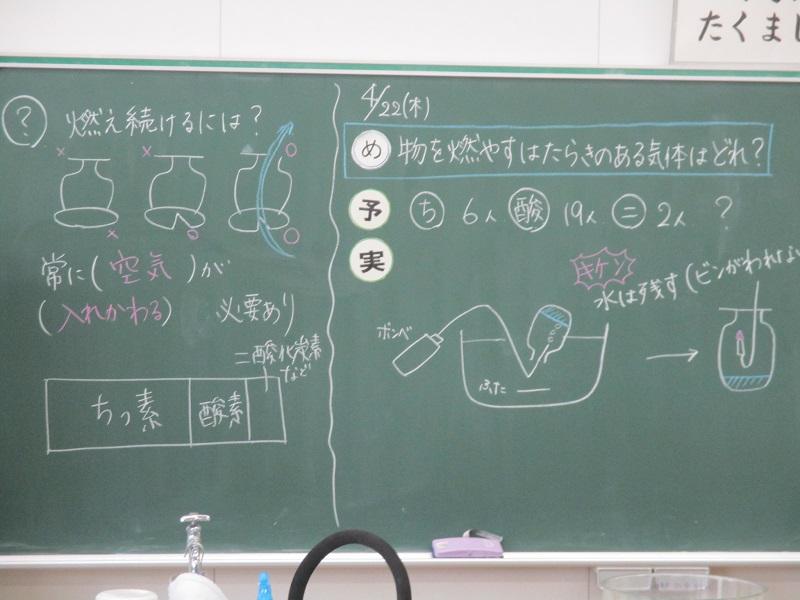 たくまし
? 燃え続けるには?
× × ○
× ○ ○
常に(空気)が
(入れかわる) 必要あり
二酸化炭素
など
ちっ素 酸素
4/22(木)
め 物を燃やすはたらきのある気体はどれ?
予 ち 6人 酸 19人 二 2人 ?
実
キケン
水は残す(ビンがわれない
ボンベ
ふた